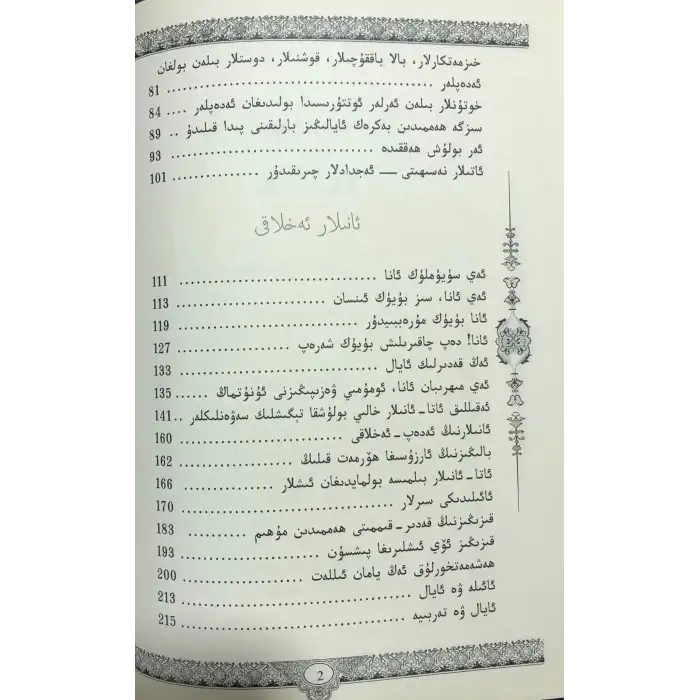 خىزمەتكارلار، بالا باققۇچىلار، قوشنىلار، دوستلار بىلەن بولغان
ئەدەپلەر ........................................ 81
خوتۇنلار بىلەن ئەرلەر ئوتتۇرىسىدا بولىدىغان ئەدەپلەر .... 84
سىزگە ھەممىدىن بەكرەك ئايالىڭىز بارلىقىنى پىدا قىلىدۇ .. 89
ئەر بولۇش ھەققىدە ................................ 93
ئاتىلار نەسىھىتى — ئەجدادلار چىرىقىدۇر ............... 101
ئانىلار ئەخلاقى
ئەي سۆيۈملۈك ئانا ........................... 111
ئەي ئانا، سىز بۈيۈك ئىنسان ........................ 113
ئانا بۈيۈك مۇرەببىيدۇر ............................. 119
ئانا! دەپ چاقىرىلىش بۈيۈك شەرەپ ................ 127
ئەڭ قەدىرلىك ئايال ............................... 133
ئەي مىھرىبان ئانا، ئومۇمىي ۋەزىپىڭىزنى ئۇنۇتماڭ ...... 135
ئەقىللىق ئاتا-ئانىلار خالىي بولۇشقا تېگىشلىك سەۋەنلىكلەر .. 141
ئانىلارنىڭ ئەدەپ-ئەخلاقى .......................... 160
بالىڭىزنىڭ ئارزۇسىغا ھۆرمەت قىلىڭ ................... 162
ئاتا-ئانىلار بىلمىسە بولمايدىغان ئىشلار ................. 166
ئائىلىدىكى سىرلار ................................ 170
قىزىڭىزنىڭ قەدىر-قىممىتى ھەممىدىن مۇھىم .......... 183
قىزىڭىز ئۆي ئىشلىرىغا پىشسۇن ...................... 193
ھەشەمەتخورلۇق ئەڭ يامان ئىللەت ................... 200
ئائىلە ۋە ئايال .................................. 213
ئايال ۋە تەربىيە ................................. 215
2